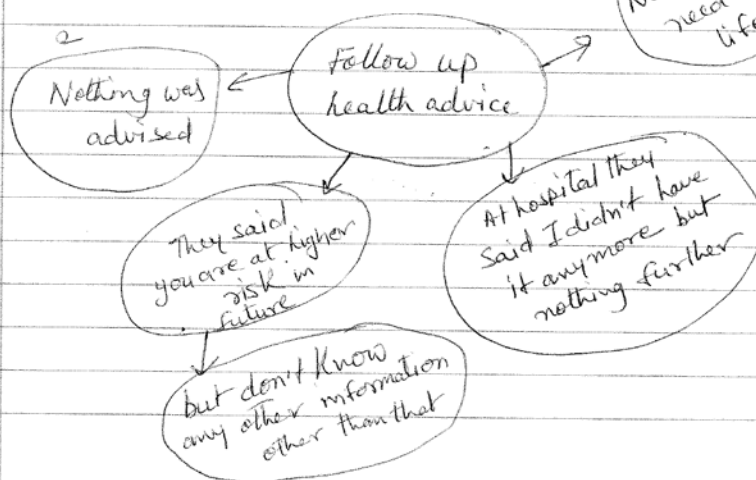 2
Follow up
health advice
Nothing was
advised
need
life
They said
you are at higher
risk in
future
At hospital they
said I didn't have
it anymore but
nothing further
but don't know
any other information
other than that